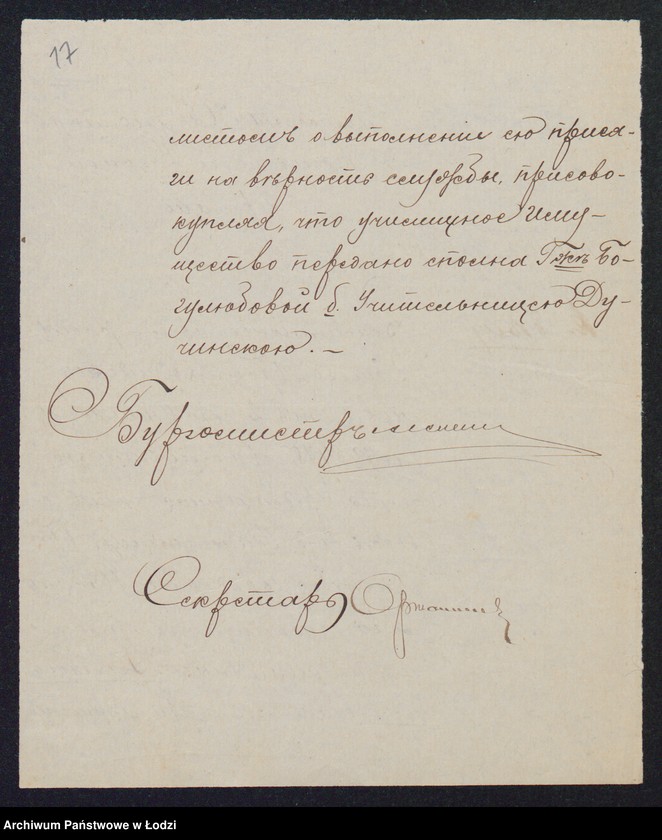 17
листомъ о выполненіи ею прися-
ги на вѣрность службы, присово-
купляя, что училищное иму-
щество передано сполна Г-жѣ Бо-
гулюбовой б. Учительницею Ду-
чинскою. —
Бургомистръ
Секретарь
Archiwum Państwowe w Łodzi